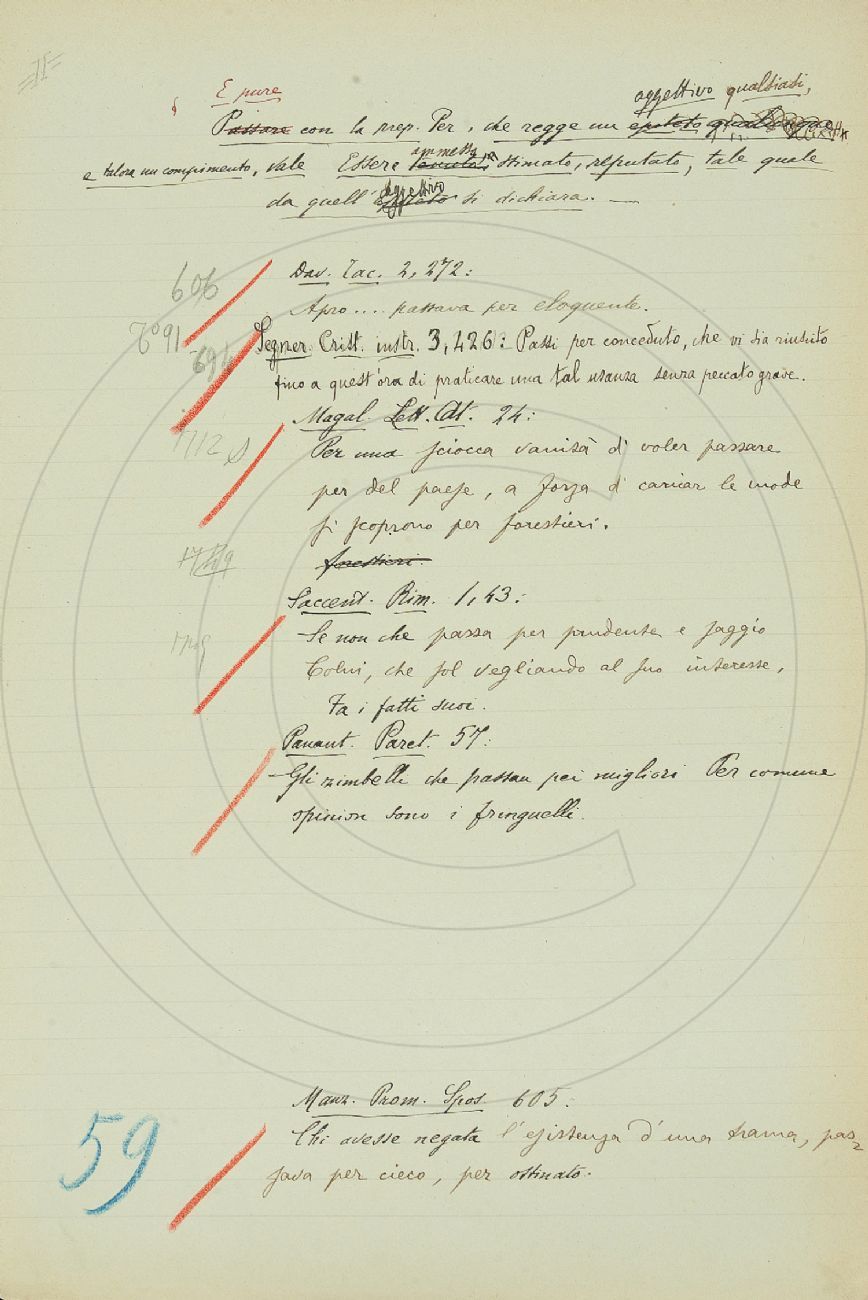 =II=
E pure
aggettivo qualsiasi,
Passare con la prep. Per, che regge un epiteto qualunque
e talora un compimento, vale Essere tenuto, ammesso, stimato, reputato, tale quale
da quell'epiteto aggettivo si dichiara. —
606
Dav. Tac. 2, 272:
Apro.... passava per eloquente.
694
Segner. Crist. instr. 3, 426: Passi per conceduto, che vi sia riuscito
fino a quest'ora di praticare una tal usanza senza peccato grave.
Magal. Lett. At. 24:
1712
Per una sciocca vanità di voler passare
per del paese, a forza di caricar le mode
si scoprono per forestieri.
forestieri.
Saccent. Rim. 1, 43:
Se non che passa per prudente e saggio
Colui, che sol vegliando al suo interesse,
Fa i fatti suoi.
Panant. Paret. 57:
Gli zimbelli che passan pei migliori Per comune
opinion sono i fringuelli.
Manz. Prom. Spos. 605:
59
Chi avesse negata l'esistenza d'una trama, pas=
sava per cieco, per ostinato.